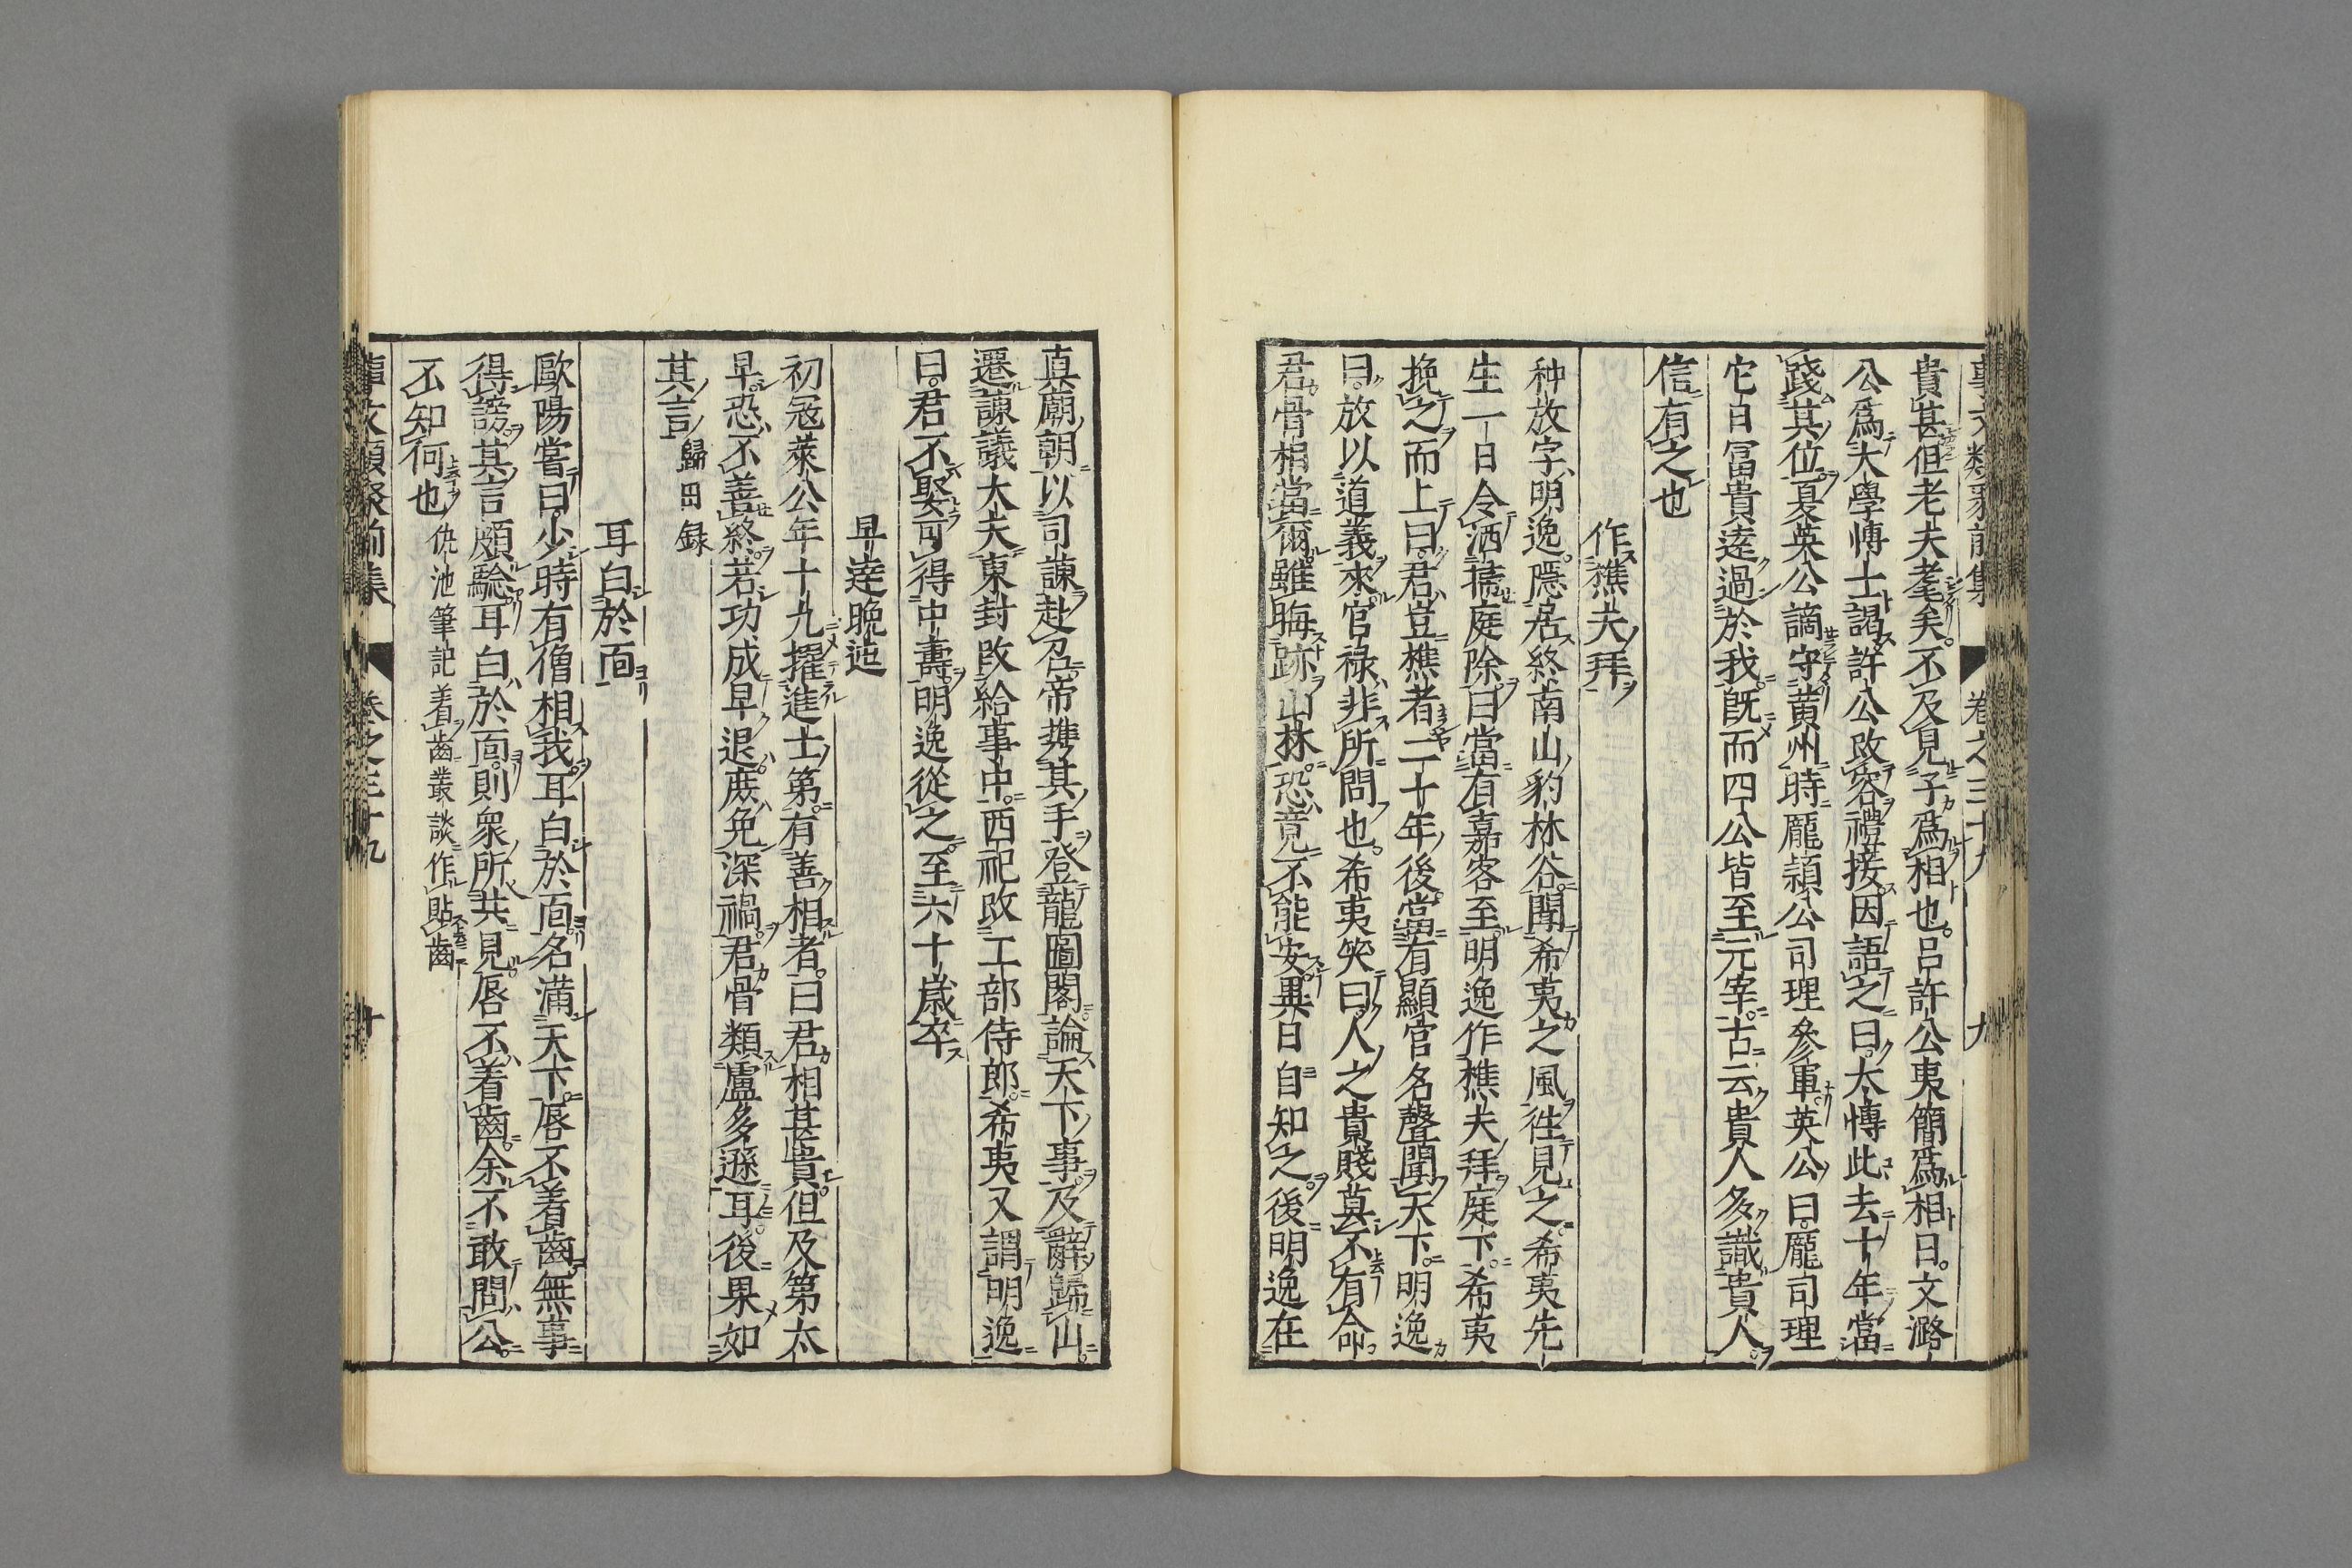 事文類聚前集 卷之三十九 九
貴甚但老夫耄矣不及見子爲相也吕許公夷簡爲相日文潞
公爲大學愽士謁許公改容禮接因語之曰太愽此去十年當
踐其位夏英公謫守黄州時龐頴公司理參軍英公曰龐司理
它日冨貴遠過於我既而四公皆至元宰古云貴人多識貴人
信有之也
作樵夫拜
种放字明逸隱居終南山豹林谷聞希夷之風徃見之希夷先
生一日令洒掃庭除曰當有嘉客至明逸作樵夫拜庭下希夷
挽之而上曰君豈樵者二十年後當有顯官名聲聞天下明逸
曰放以道義來官禄非所問也希夷笑曰人之貴賤莫不有命
君骨相當爾雖晦跡山林恐竟不能安異日自知之後明逸在
真廟朝以司諫赴召帝携其手登龍圖閣論天下事及辭歸山
遷諫議大夫東封改給事中西祀改工部侍郎希夷又謂明逸
曰君不娶可得中壽明逸從之至六十歳卒
早逹晩迍
初冦萊公年十九擢進士第有善相者曰君相甚貴但及第太
早恐不善終若功成早退庻免深禍君骨類盧多遜耳後果如
其言 歸田録
耳白於靣
歐陽嘗曰少時有僧相我耳白於靣名滿天下唇不着齒無事
得謗其言頗驗耳白於靣則衆所共見唇不着齒余不敢問公
不知何也 仇池筆記 着齒叢談作貼齒
事文類聚前集 卷之三十九 十